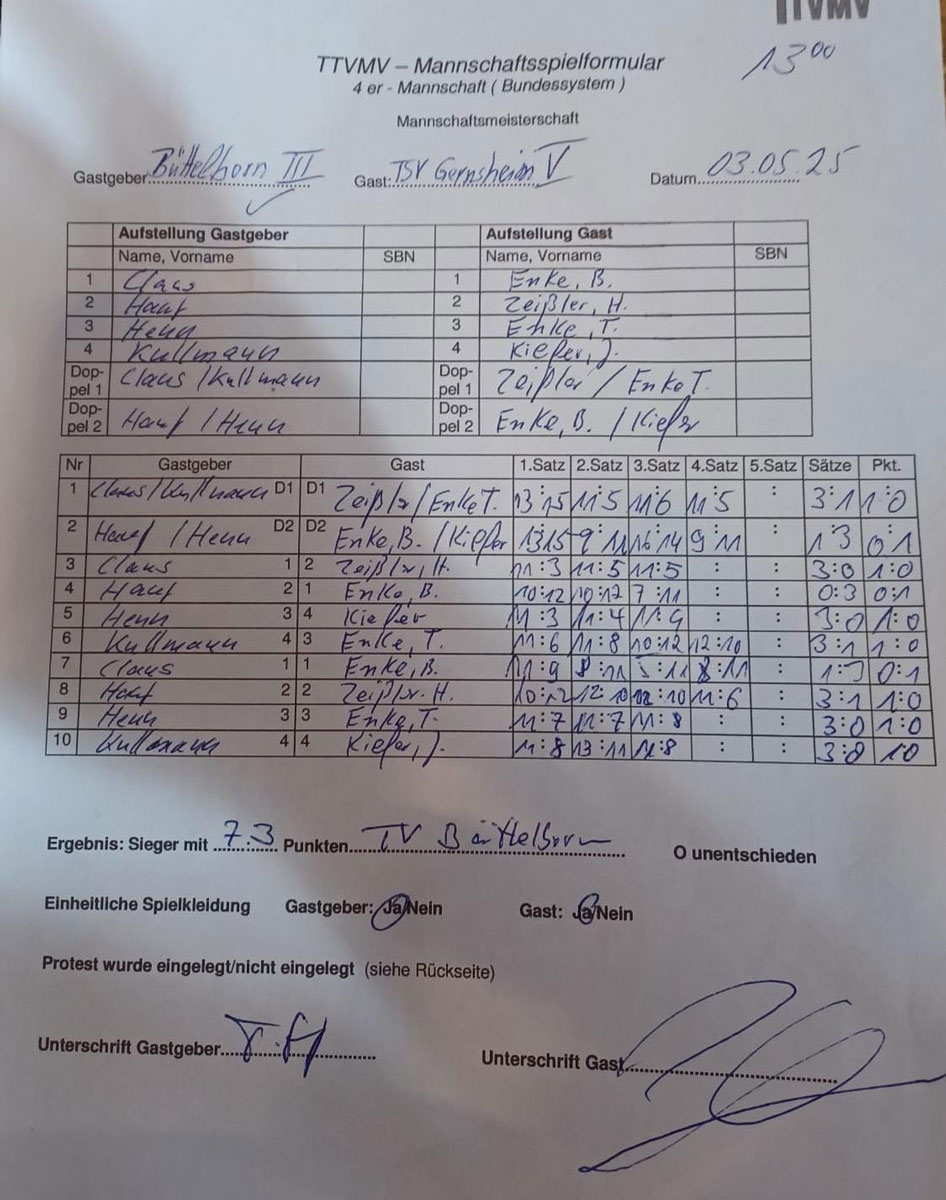 TTVMV
TTVMV – Mannschaftsspielformular
13⁰⁰
4 er - Mannschaft ( Bundessystem )
Mannschaftsmeisterschaft
Gastgeber: Büttelborn III Gast: TSV Gernsheim V Datum 03.05.25
Aufstellung Gastgeber Aufstellung Gast
Name, Vorname SBN Name, Vorname SBN
1 Claus 1 Enke, B.
2 Hauf 2 Zeißler, H.
3 Henn 3 Enke, T.
4 Kullmann 4 Kiefer, J.
Dop-pel 1 Claus / Kullmann Dop-pel 1 Zeißler / Enke T.
Dop-pel 2 Hauf / Henn Dop-pel 2 Enke, B. / Kiefer
Nr Gastgeber Gast 1.Satz 2.Satz 3.Satz 4.Satz 5.Satz Sätze Pkt.
1 Claus / Kullmann D1 D1 Zeißler / Enke T. 13:15 11:5 11:6 11:5 : 3:1 1:0
2 Hauf / Henn D2 D2 Enke, B. / Kiefer 13:15 9:11 16:14 9:11 : 1:3 0:1
3 Claus 1 2 Zeißler, H. 11:3 11:5 11:5 : : 3:0 1:0
4 Hauf 2 1 Enke, B. 10:12 10:12 7:11 : : 0:3 0:1
5 Henn 3 4 Kiefer 11:3 11:4 11:4 : : 3:0 1:0
6 Kullmann 4 3 Enke, T. 11:6 11:8 10:12 12:10 : 3:1 1:0
7 Claus 1 1 Enke, B. 11:9 8:11 5:11 8:11 : 1:3 0:1
8 Hauf 2 2 Zeißler, H. 10:12 12:10 12:10 11:6 : 3:1 1:0
9 Henn 3 3 Enke, T. 11:7 11:7 11:8 : : 3:0 1:0
10 Kullmann 4 4 Kiefer, J. 11:8 13:11 11:8 : : 3:0 1:0
Ergebnis: Sieger mit 7:3 Punkten TV Büttelborn O unentschieden
Einheitliche Spielkleidung Gastgeber: Ja/Nein Gast: Ja/Nein
Protest wurde eingelegt/nicht eingelegt (siehe Rückseite)
Unterschrift Gastgeber Unterschrift Gast